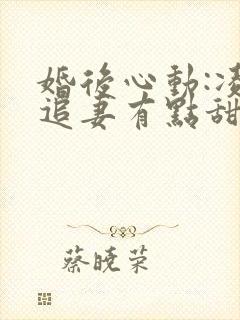 婚後心動:凌
追妻有點甜
蔡曉榮